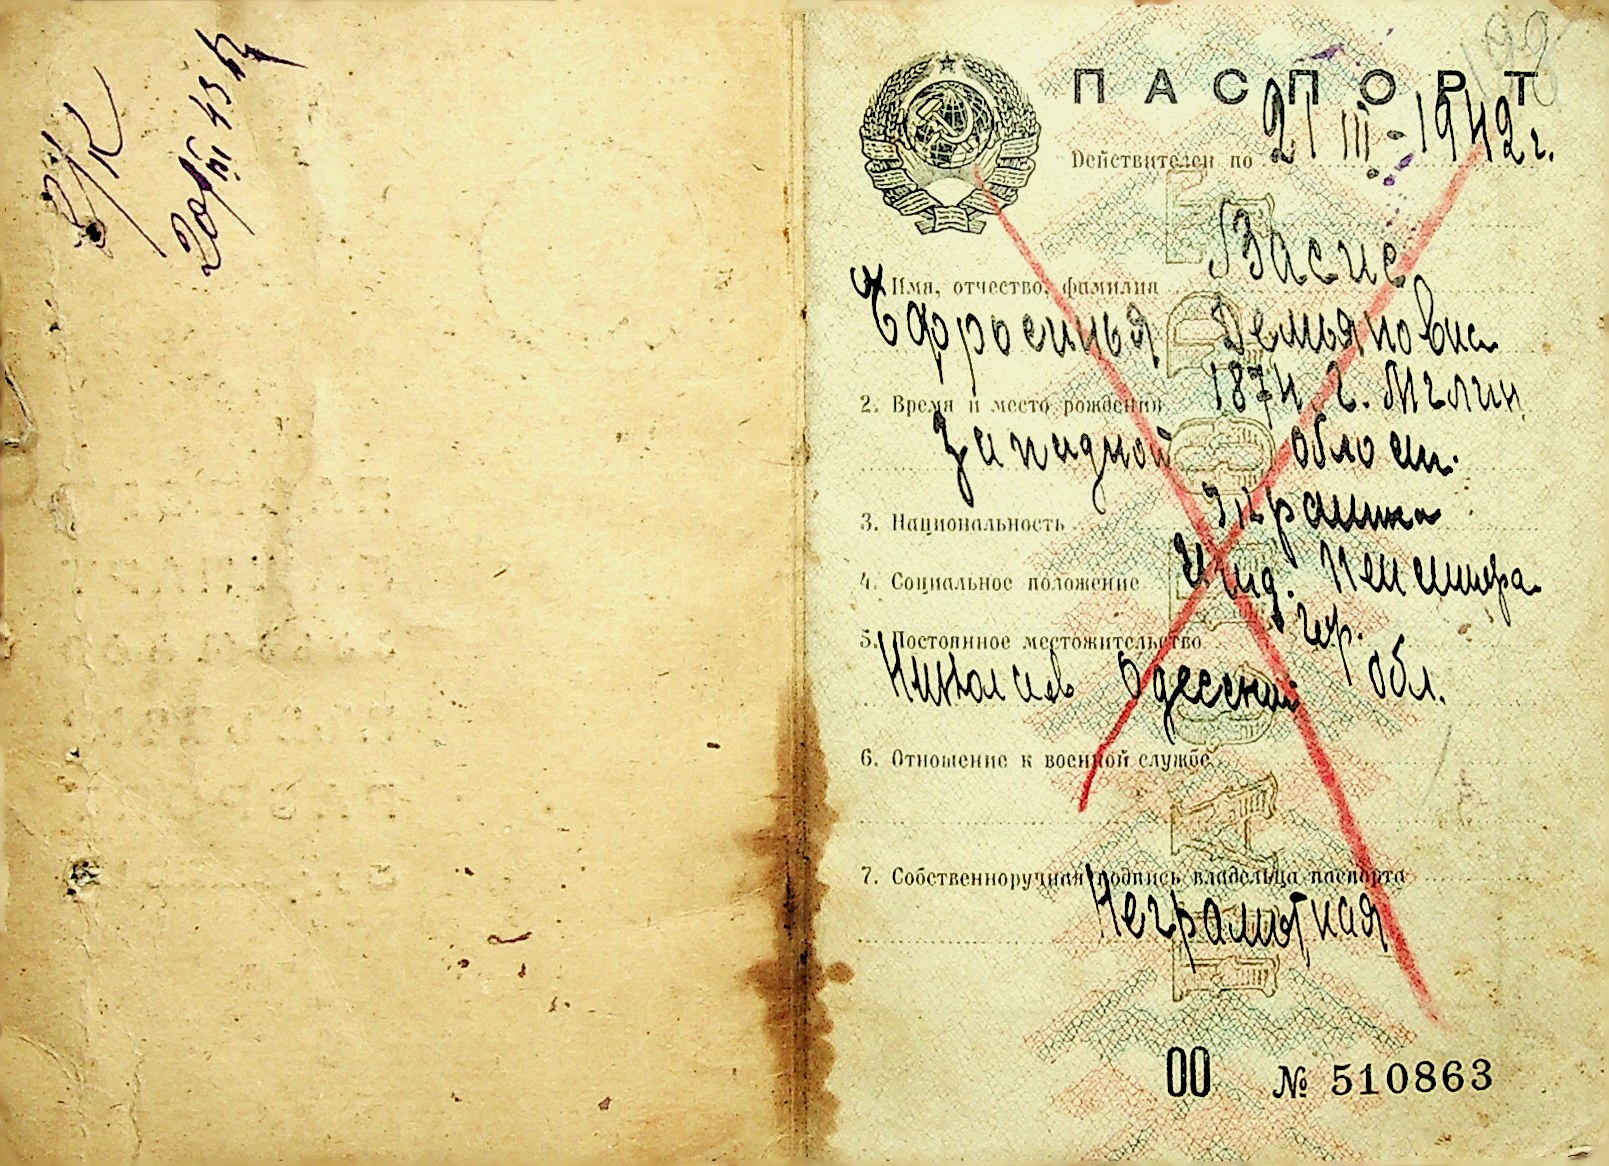 ПАСПОРТ
Действителен по 21 III - 1942 г.
Васис
1. Имя, отчество, фамилия
Ефросинья Демьяновна
2. Время и место рождения 1874 г. Мглин
Западной област.
3. Национальность Украинка
4. Социальное положение Ижд. пенсионера
5. Постоянное местожительство гор.
Николаев Одесский обл.
6. Отношение к военной службе
7. Собственноручная подпись владельца паспорта
Неграмотная
00 № 510863